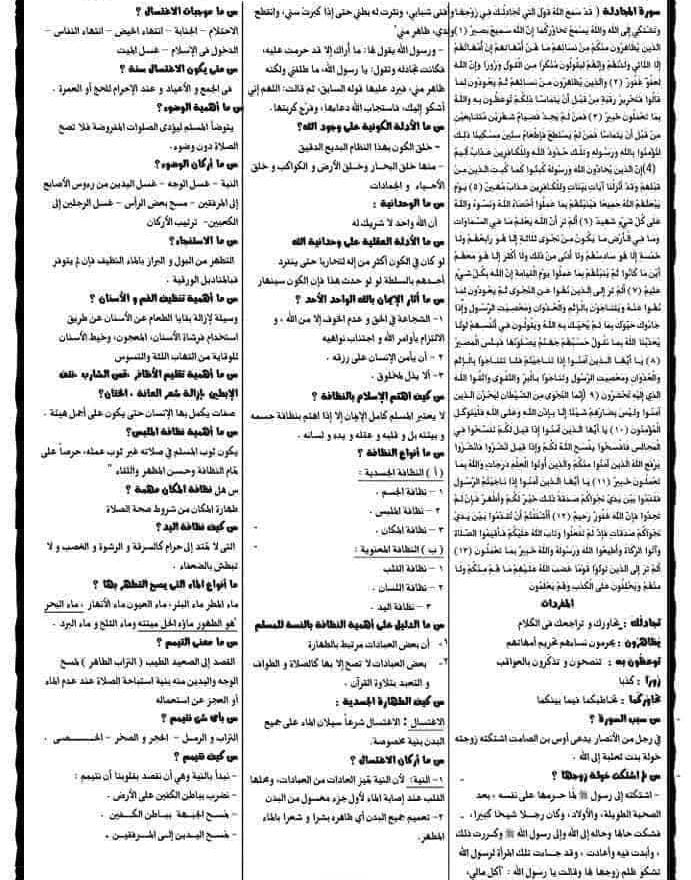 سورة المجادلة ( قد سمع الله قول التي تجادلك في زوجها
وتشتكي إلى الله والله يسمع تحاوركما إن الله سميع بصير (١)
الذين يظاهرون منكم من نسائهم ما هن أمهاتهم إن أمهاتهم
إلا اللائي ولدنهم وإنهم ليقولون منكرا من القول وزورا وإن الله
لعفو غفور (٢) والذين يظاهرون من نسائهم ثم يعودون لما
قالوا فتحرير رقبة من قبل أن يتماسا ذلكم توعظون به والله
بما تعملون خبير (٣) فمن لم يجد فصيام شهرين متتابعين
من قبل أن يتماسا فمن لم يستطع فإطعام ستين مسكينا ذلك
لتؤمنوا بالله ورسوله وتلك حدود الله وللكافرين عذاب أليم
(4)إن الذين يحادون الله ورسوله كبتوا كما كبت الذين من
قبلهم وقد أنزلنا آيات بينات وللكافرين عذاب مهين (٥) يوم
يبعثهم الله جميعا فينبئهم بما عملوا أحصاه الله ونسوه والله
على كل شيء شهيد (٦) ألم تر أن الله يعلم ما في السماوات
وما في الأرض ما يكون من نجوى ثلاثة إلا هو رابعهم ولا
خمسة إلا هو سادسهم ولا أدنى من ذلك ولا أكثر إلا هو معهم
أين ما كانوا ثم ينبئهم بما عملوا يوم القيامة إن الله بكل شيء
عليم (٧) ألم تر إلى الذين نهوا عن النجوى ثم يعودون لما
نهوا عنه ويتناجون بالإثم والعدوان ومعصيت الرسول وإذا
جاءوك حيوك بما لم يحيك به الله ويقولون في أنفسهم لولا
يعذبنا الله بما نقول حسبهم جهنم يصلونها فبئس المصير
(٨) يا أيها الذين آمنوا إذا تناجيتم فلا تتناجوا بالإثم
والعدوان ومعصيت الرسول وتناجوا بالبر والتقوى واتقوا الله
الذي إليه تحشرون (٩) إنما النجوى من الشيطان ليحزن الذين
آمنوا وليس بضارهم شيئا إلا بإذن الله وعلى الله فليتوكل
المؤمنون (١٠) يا أيها الذين آمنوا إذا قيل لكم تفسحوا في
المجالس فافسحوا يفسح الله لكم وإذا قيل انشزوا فانشزوا
يرفع الله الذين آمنوا منكم والذين أوتوا العلم درجات والله بما
تعملون خبير (١١) يا أيها الذين آمنوا إذا ناجيتم الرسول
فقدموا بين يدي نجواكم صدقة ذلك خير لكم وأطهر فإن لم
تجدوا فإن الله غفور رحيم (١٢) أأشفقتم أن تقدموا بين يدي
نجواكم صدقات فإذ لم تفعلوا وتاب الله عليكم فأقيموا الصلاة
وآتوا الزكاة وأطيعوا الله ورسوله والله خبير بما تعملون (١٣)
ألم تر إلى الذين تولوا قوما غضب الله عليهم ما هم منكم ولا
منهم ويحلفون على الكذب وهم يعلمون
المفردات
تجادلك : تحاورك و تراجعك في الكلام
يظاهرون : يحرمون نساءهم تحريم أمهاتهم
توعظون به : تنصحون و تذكرون بالعواقب
زورا : كذبا
تحاوركما : تخاطبكما فيما بينكما
س سبب السورة ؟
في رجل من الأنصار يدعى أوس بن الصامت اشتكته زوجته
خولة بنت ثعلبة إلى الله .
س لم اشتكت خولة زوجها ؟
- اشتكته إلى رسول ﷺ لما حرمها على نفسه ، بعد
الصحبة الطويلة، والأولاد، وكان رجلا شيخا كبيرا، .
فشكت حالها وحاله إلى الله وإلى رسول الله ﷺ وكررت ذلك
، وأبدت فيه وأعادت ، وقد جاءت تلك المرأة لرسول الله
تشكو ظلم زوجها لها وقالت يا رسول الله : أكل مالي،
وأفنى شبابي، ونثرت له بطني حتى إذا كبرت سني، وانقطع
ولدي، ظاهر مني"
- ورسول الله يقول لها: ما أراك إلا قد حرمت عليه،
فكانت تجادله وتقول: يا رسول الله، ما طلقني ولكنه
ظاهر مني، فيرد عليها قوله السابق، ثم قالت: اللهم إني
أشكو إليك، فاستجاب الله دعاءها، وفرج كربتها.
س ما الأدلة الكونية على وجود الله؟
- خلق الكون بهذا النظام البديع الدقيق
- منها خلق البحار وخلق الأرض و الكواكب و خلق
الأحياء و الجمادات
س ما الوحدانية :
أن الله واحد لا شريك له
س ما الأدلة العقلية على وحدانية الله
لو كان في الكون أكثر من إله لتحاربا حتى ينفرد
أحدهم بالسلطة لو لو حدث هذا فإن الكون سينهار
س ما آثار الإيمان بالله الواحد الأحد ؟
١- الشجاعة في الحق و عدم الخوف إلا من الله ، و
الالتزام بأوامر الله و اجتناب نواهيه
٢ - أن يأمن الإنسان على رزقه .
٣ - ألا يذل لمخلوق .
س كيف اهتم الإسلام بالنظافة ؟
لا يعتبر المسلم كامل الإيمان إلا إذا اهتم بنظافة جسمه
و بيئته بل و قلبه و عقله و يده و لسانه .
س ما أنواع النظافة ؟
( أ ) النظافة الجسدية :
١ - نظافة الجسم .
٢ - نظافة الملبس .
٣ - نظافة المكان .
( ب ) النظافة المعنوية :
١ - نظافة القلب
٢ - نظافة اللسان .
٣ - نظافة اليد .
س ما الدليل على أهمية النظافة بالنسة للمسلم
١- أن بعض العبادات مرتبط بالطهارة
٢- بعض العبادات لا تصح إلا بها كالصلاة و الطواف
و التعبد بتلاوة القرآن .
س كيفت الطهارة الجسدية :
الاغتسال : الاغتسال شرعاً سيلان الماء على جميع
البدن بنية مخصوصة.
س ما أركان الاغتسال ؟
١- النية: لأن النية تميز العادات من العبادات، ومحلها
القلب عند إصابة الماء لأول جزء مغسول من البدن
٢- تعميم جميع البدن أي ظاهره بشرا و شعرا بالماء
المطهر.
س ما موجبات الاغتسال ؟
الاحتلام - الجنابة - انتهاء الحيض - انتهاء النفاس -
الدخول في الإسلام - غسل الميت
س متى يكون الاغتسال سنة ؟
في الجمع و الأعياد و عند الإحرام للحج أو العمرة .
س ما أهمية الوضوء؟
يتوضأ المسلم ليؤدى الصلوات المفروضة فلا تصح
الصلاة دون وضوء.
س ما أركان الوضوء؟
النية - غسل الوجه - غسل اليدين من رءوس الأصابع
إلى المرفقين - مسح بعض الرأس - غسل الرجلين إلى
الكعبين- ترتيب الأركان
س ما الاستنجاء؟
التطهر من البول و البراز بالماء النظيف فإن لم يتوفر
فبالمناديل الورقية .
س ما أهمية تنظيف الفم و الأسنان ؟
وسيلة لإزالة بقايا الطعام عن الأسنان عن طريق
استخدام فرشاة الأسنان، المعجون، وخيط الأسنان
للوقاية من التهاب اللثة والتسوس
س ما أهمية تقليم الأظافر -قص الشارب -نتف
الإبطين -إزالة شعر العانة . الختان؟
صفات يكمل بها الإنسان حتى يكون على أجمل هيئة .
س ما أهمية نظافة الملبس؟
يكون ثوب المسلم في صلاته غير ثوب عمله، حرصاً على
تمام النظافة وحسن المظهر واللقاء "
س هل نظافة المكان مهمة ؟
طهارة المكان من شروط صحة الصلاة
س كيف نظافة اليد ؟
التى لا تمتد إلى حرام كالسرقة و الرشوة و الغصب و لا
تبطش بالضعفاء .
ما أنواع الماء التى يصح التطهر بها ؟
ماء المطر ماء البئر، ماء العيون ماء الأنهار ، ماء البحر
"هو الطهور ماؤه الحل ميتته وماء الثلج و ماء البرد .
س ما معنى التيمم ؟
القصد إلى الصعيد الطيب ( التراب الطاهر ) لمسح
الوجه واليدين منه بنية استباحة الصلاة عند عدم الماء
أو العجز عن استعماله
س بأى شئ نتيمم ؟
التراب و الرمل - الحجر و الصخر - الحصى .
س كيف نتيمم ؟
- نبدأ بالنية وهي أن نقصد بقلوبنا أن نتيمم :
- نضرب بباطن الكفين على الأرض .
- نمسح الجبهة بباطن الكفين .
- نمسح اليدين إلى المرفقين .